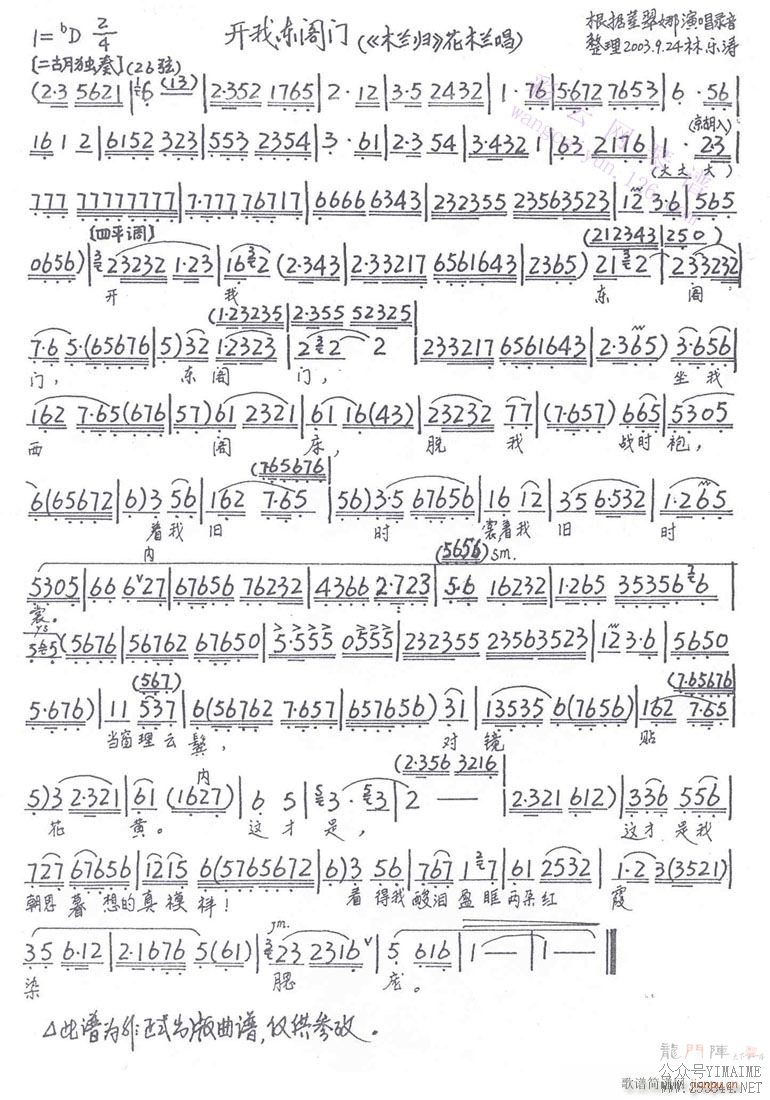 1=ᵇD 2/4 开我东阁门(《木兰归》花木兰唱) 根据董翠娜演唱录音
整理2003.9.24林乐涛
[二胡独奏](26弦)
(2·3 5621|6 (13)|2·352 1765|2·12|3·5 2432|1·76|5·672 7653|6·56|
161 2|6152 323|553 2354|3·61|2·3 54|3·432 1|63 2176|1·23|
(京胡入)
(大大 大)
777 77777777|7·777 76717|6666 6343|232355 23563523|112 3·6|565
[四平调] (212343|250)
0656)|323232 1·23|1632 (2·343|2·33217 6561643|2365) 2132|233232|
开 我 东 阁
(1·23235|2·355 52325|
7·6 5·(65676|5)32 1·2323|232 2|233217 6561643|2·365) 3·656|
门, 东阁 门, 坐我
162 7·65(676|57)61 2321|61 16(43)|23232 77|(7·657) 665|5305|
西 阁 床, 脱 我 战时袍,
(765676|
6(65672|6)3 56|162 7·65|56)3·5 67656|16 12|35 6·532|1·265|
着我 旧 时 裳着我 旧 时
内 (5656) sm.
5305|66 627|67656 76232|4366 2·723|5·6 16232|1·265 3535636|
裳。
(5676|56762 67650|5·555 0555|232355 23563523|112 3·6|5650
(567) (7·65676|
5·676)|11 537|6(56762 7·657|657656) 31|13535 6(7656)|162 7·65|
当窗理云鬓, 对 镜 贴
内 (2·356 3216|
5)3 2·321|61 (1627)|6 5|3·3|2 — —|2·321 612)|336 556|
花 黄。 这才 是, 这才是我
727 67656|1215 6(5765672|6)3 56|767 1 7|61 2532|1·2 3(3521)|
朝思暮想的真模样! 着得我 酸泪盈眶两朵红 霞
35 6·12|2·1676 5(61)|23 2316|5 616|1 —|1 —‖
染 腮 庞。
△此谱为非正式出版曲谱,仅供参改。
龍門陣
公众号YIMAIME
歌谱简谱网 jianpu.cn